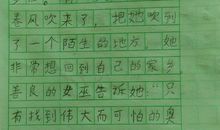 春风吹来了，把她吹到
了一个陌生的地方，她
非常想回到自己的家乡，
善良的女巫告诉她：“只
有找到伟大而可怕的奥